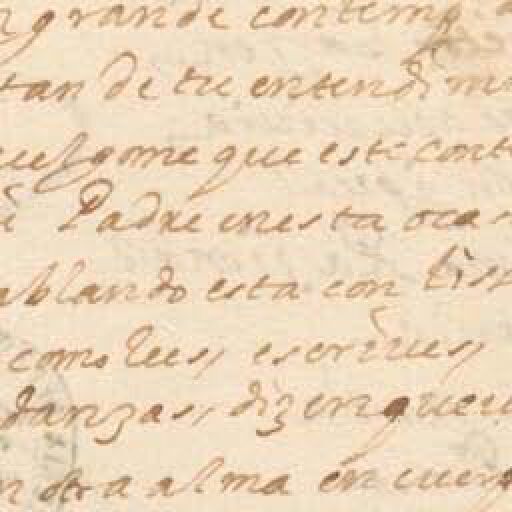 n grande contempla
tan de tu entendim
uelgome que este cont
Padre en esta ocas
ablando esta con
como lees, escriues,
danzas, dizen que
n otra alma en cuerp